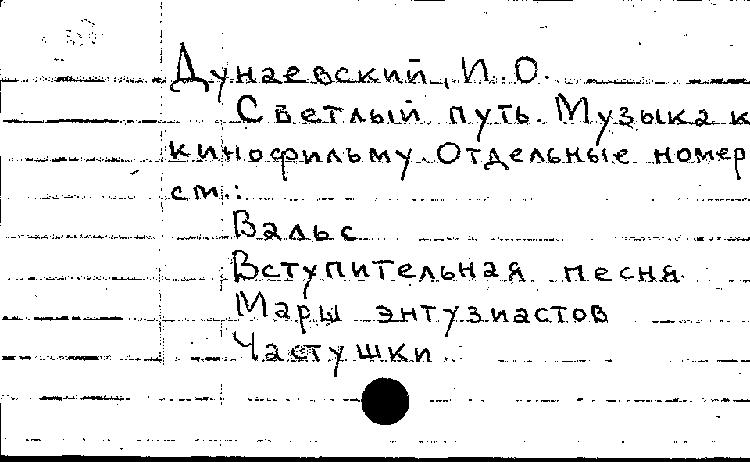 Дунаевский, И.О.
Светлый путь. Музыка к
кинофильму. Отдельные номер
ст.:
Вальс
Вступительная песня
Марш энтузиастов
Частушки